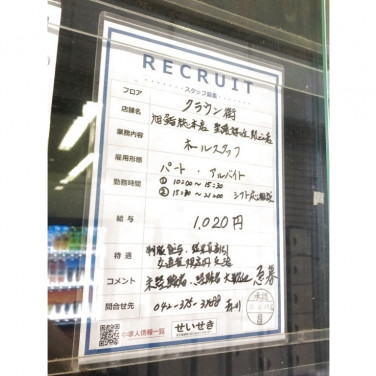 RECRUIT
スタッフ募集
フロア クラウン街
店舗名 旭鮨総本店
業務内容 ホールスタッフ
雇用形態 パート・アルバイト
勤務時間 ① 10:00〜15:30
② 15:30〜21:00 シフト応相談
給与 1,020円
待遇 制服貸与・従業員割引
交通費規定内支給
コメント 未経験者・経験者大歓迎 急募
問合せ先 042-375-3188
求人情報一覧 せいせき